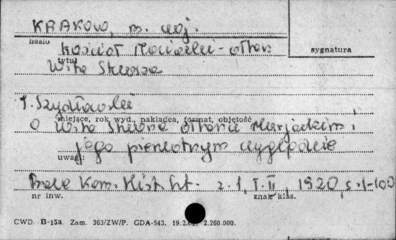 KRAKÓW, m. woj.
hasło
Kościół Mariacki - ołtarz
sygnatura
tytuł
Wita Stwosza
T. Szydłowski
miejsce, rok wyd., nakładca, format, objętość
O Wita Stwosza ołtarzu Marjackim i
jego pierwotnym wyglądzie
uwagi:
Prace Kom. Hist. Szt. - z. 1, T. II, 1920, s. 1-100
nr inw.
znak klas.
CWD. B-15a. Zam. 363/ZW/P. GDA-543. 2.260.000.